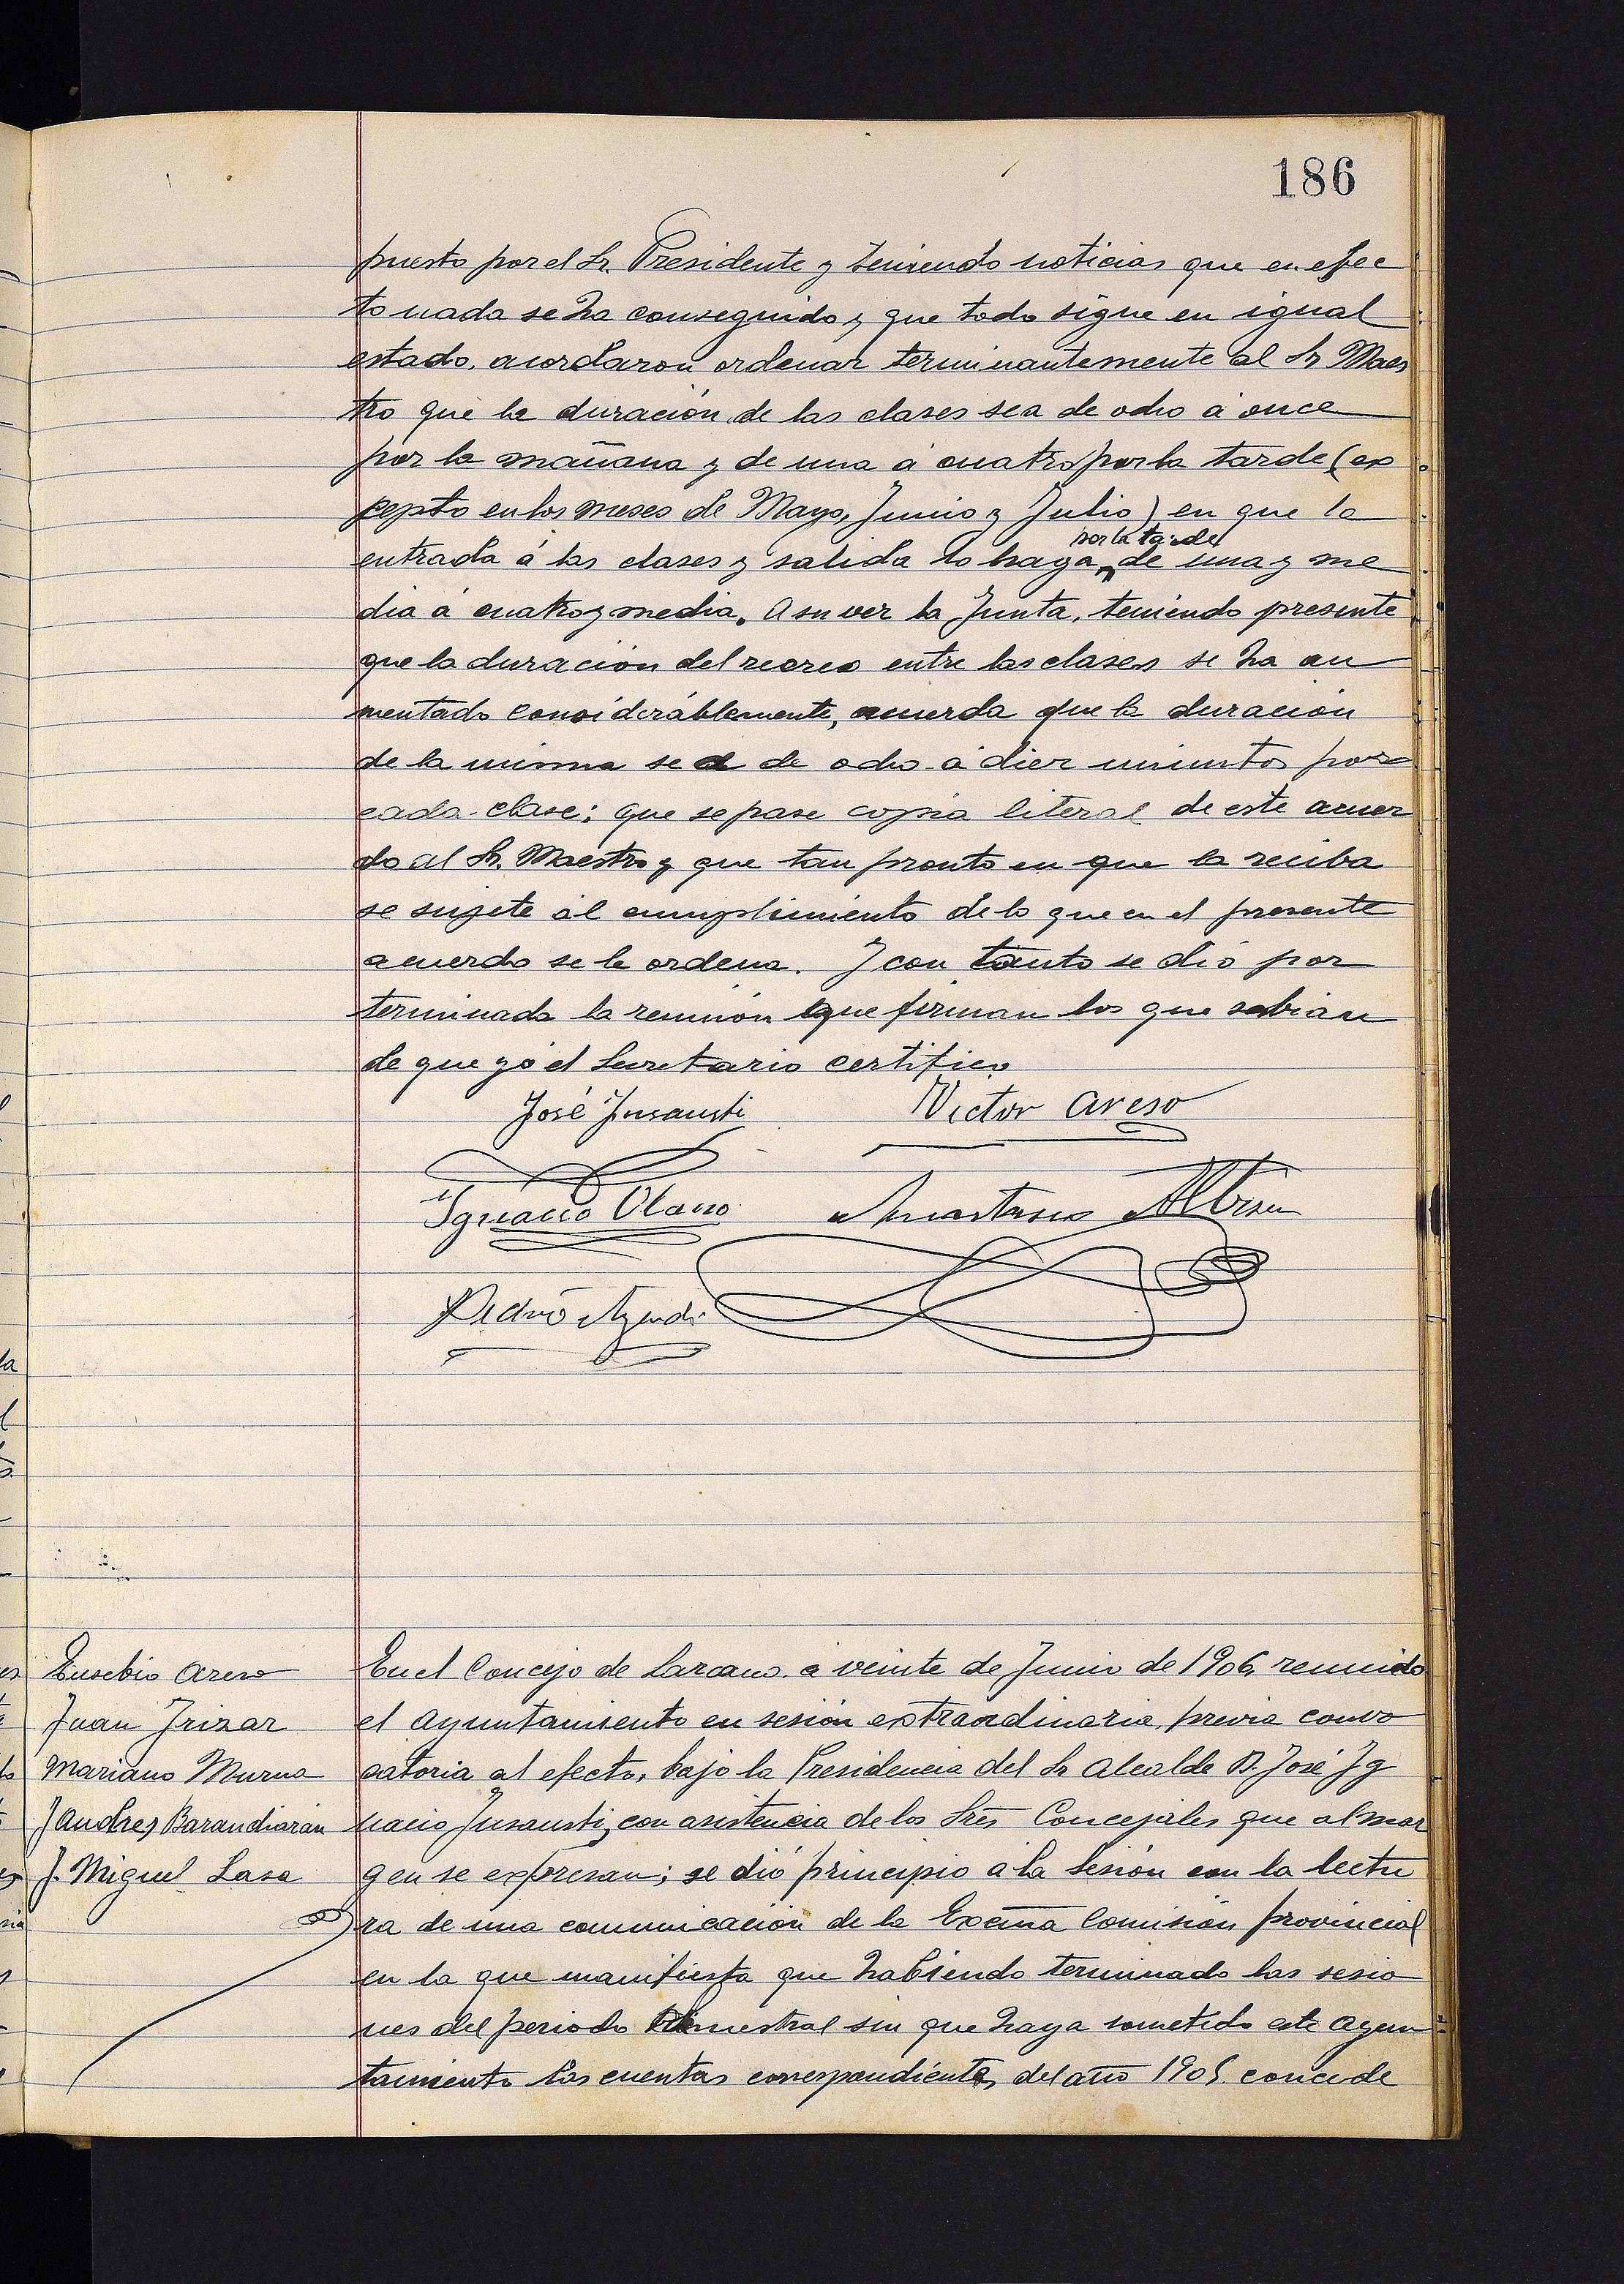 186
puesto por el Sr. Presidente y teniendo noticias que en efec
to nada se ha conseguido y que todo sigue en igual
estado, acordaron ordenar terminantemente al Sr Maes
tro que la duración de las clases sea de ocho á once
por la mañana y de una á cuatro por la tarde (ex
cepto en los meses de Mayo, Junio y Julio) en que la
por la tarde
entrada á las clases y salida lo haga de una y me
dia á cuatro y media. A su ver la Junta, teniendo presente
que la duración del recreo entre las clases se ha au
mentado considerablemente, acuerda que la duración
de la misma sea de ocho á diez minutos por
cada clase; que se pase copia literal de este acuer
do al Sr. Maestro y que tan pronto en que la reciba
se sujete al cumplimiento de lo que en el presente
acuerdo se le ordena. Y con tanto se dió por
terminada la reunión que firman los que sabian
de que yó el Secretario certifico
José Ynsausti Victor Areso
Ygnacio Olano Anastasio Albisu
Pedro
Eusebio Areso
Juan Yrizar
Mariano Murua
J Andres Barandiarán
J. Miguel Lasa
En el Concejo de Lazcano á veinte de Junio de 1906, reunido
el Ayuntamiento en sesión extraordinaria, previa convo
catoria al efecto, bajo la Presidencia del Sr Alcalde D. José Yg
nacio Ynsausti, con asistencia de los Sres Concejales que al mar
gen se expresan; se dió principio á la sesión con la lectu
ra de una comunicación de la Excma Comisión provincial
en la que manifiesta que habiendo terminado las sesio
nes del periodo semestral sin que haya sometido este Ayun
tamiento las cuentas correspondientes del año 1905. concede